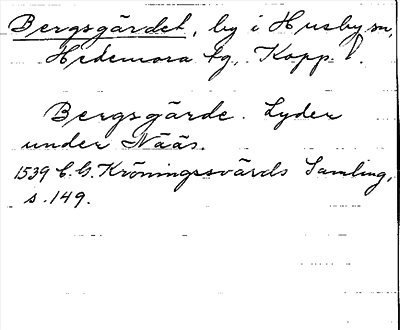 Bergsgärdet, by i Husby sn,
Hedemora tg, Kopp. l.
Bergsgärde. Lyder
under Nääs.
1539 C. G. Kröningssvärds Samling,
s. 149.